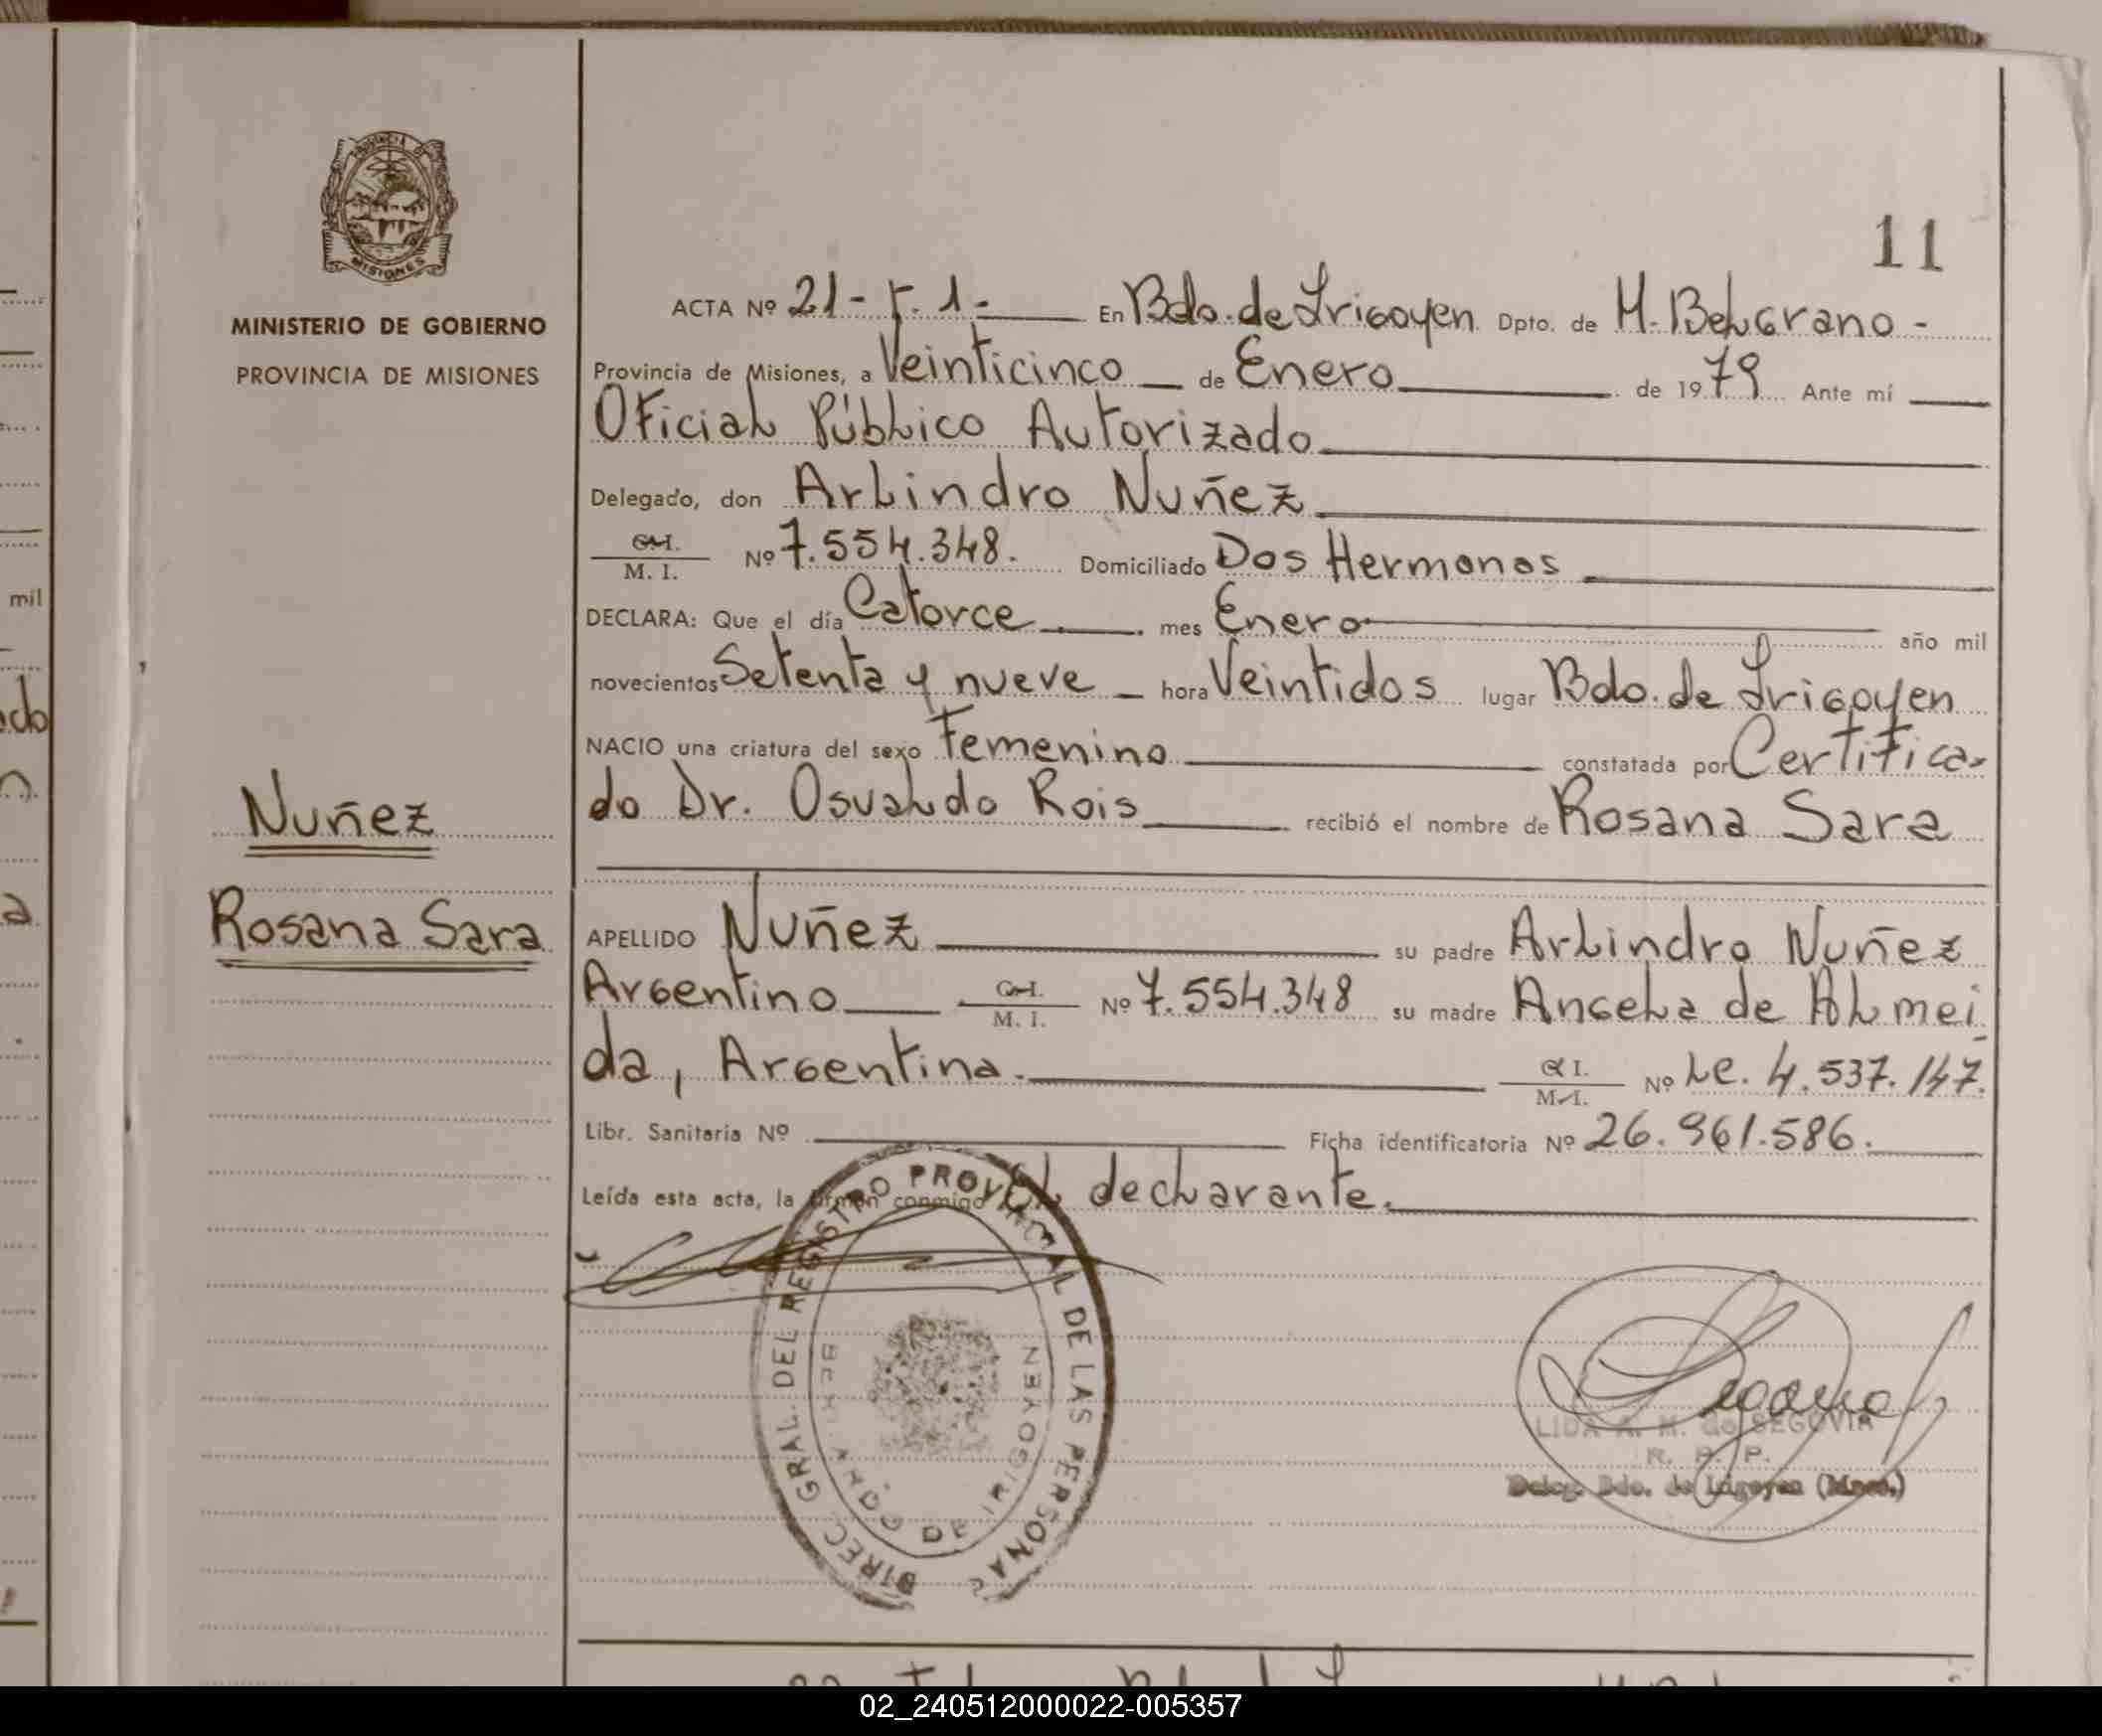 PROVINCIA DE
MISIONES
MINISTERIO DE GOBIERNO
PROVINCIA DE MISIONES
Nuñez
Rosana Sara
11
ACTA Nº 21 - T. 1 - En Bdo. de Irigoyen Dpto. de M. Belgrano -
Provincia de Misiones, a Veinticinco de Enero de 1979 Ante mí
Oficial Público Autorizado
Delegado, don Arlindro Nuñez
C. I. M. I. Nº 7.554.348. Domiciliado Dos Hermanos
DECLARA: Que el día Catorce mes Enero año mil
novecientos Setenta y nueve hora Veintidos lugar Bdo. de Irigoyen
NACIO una criatura del sexo Femenino constatada por Certifica-
do Dr. Osvaldo Rois recibió el nombre de Rosana Sara
APELLIDO Nuñez su padre Arlindro Nuñez
Argentino C. I. M. I. Nº 7.554.348 su madre Angela de Almei
da, Argentina. C. I. M. I. Nº Lc. 4.537.147.
Libr. Sanitaria Nº Ficha identificatoria Nº 26.961.586.
Leída esta acta, la firman conmigo el declarante.
DIREC. GRAL. DEL REGISTRO PROVINCIAL DE LAS PERSONAS
BERNARDO DE IRIGOYEN
LIDA A. M. de SEGOVIA
R. P. P.
Deleg. Bdo. de Irigoyen (Mnes.)
mil
02_240512000022-005357